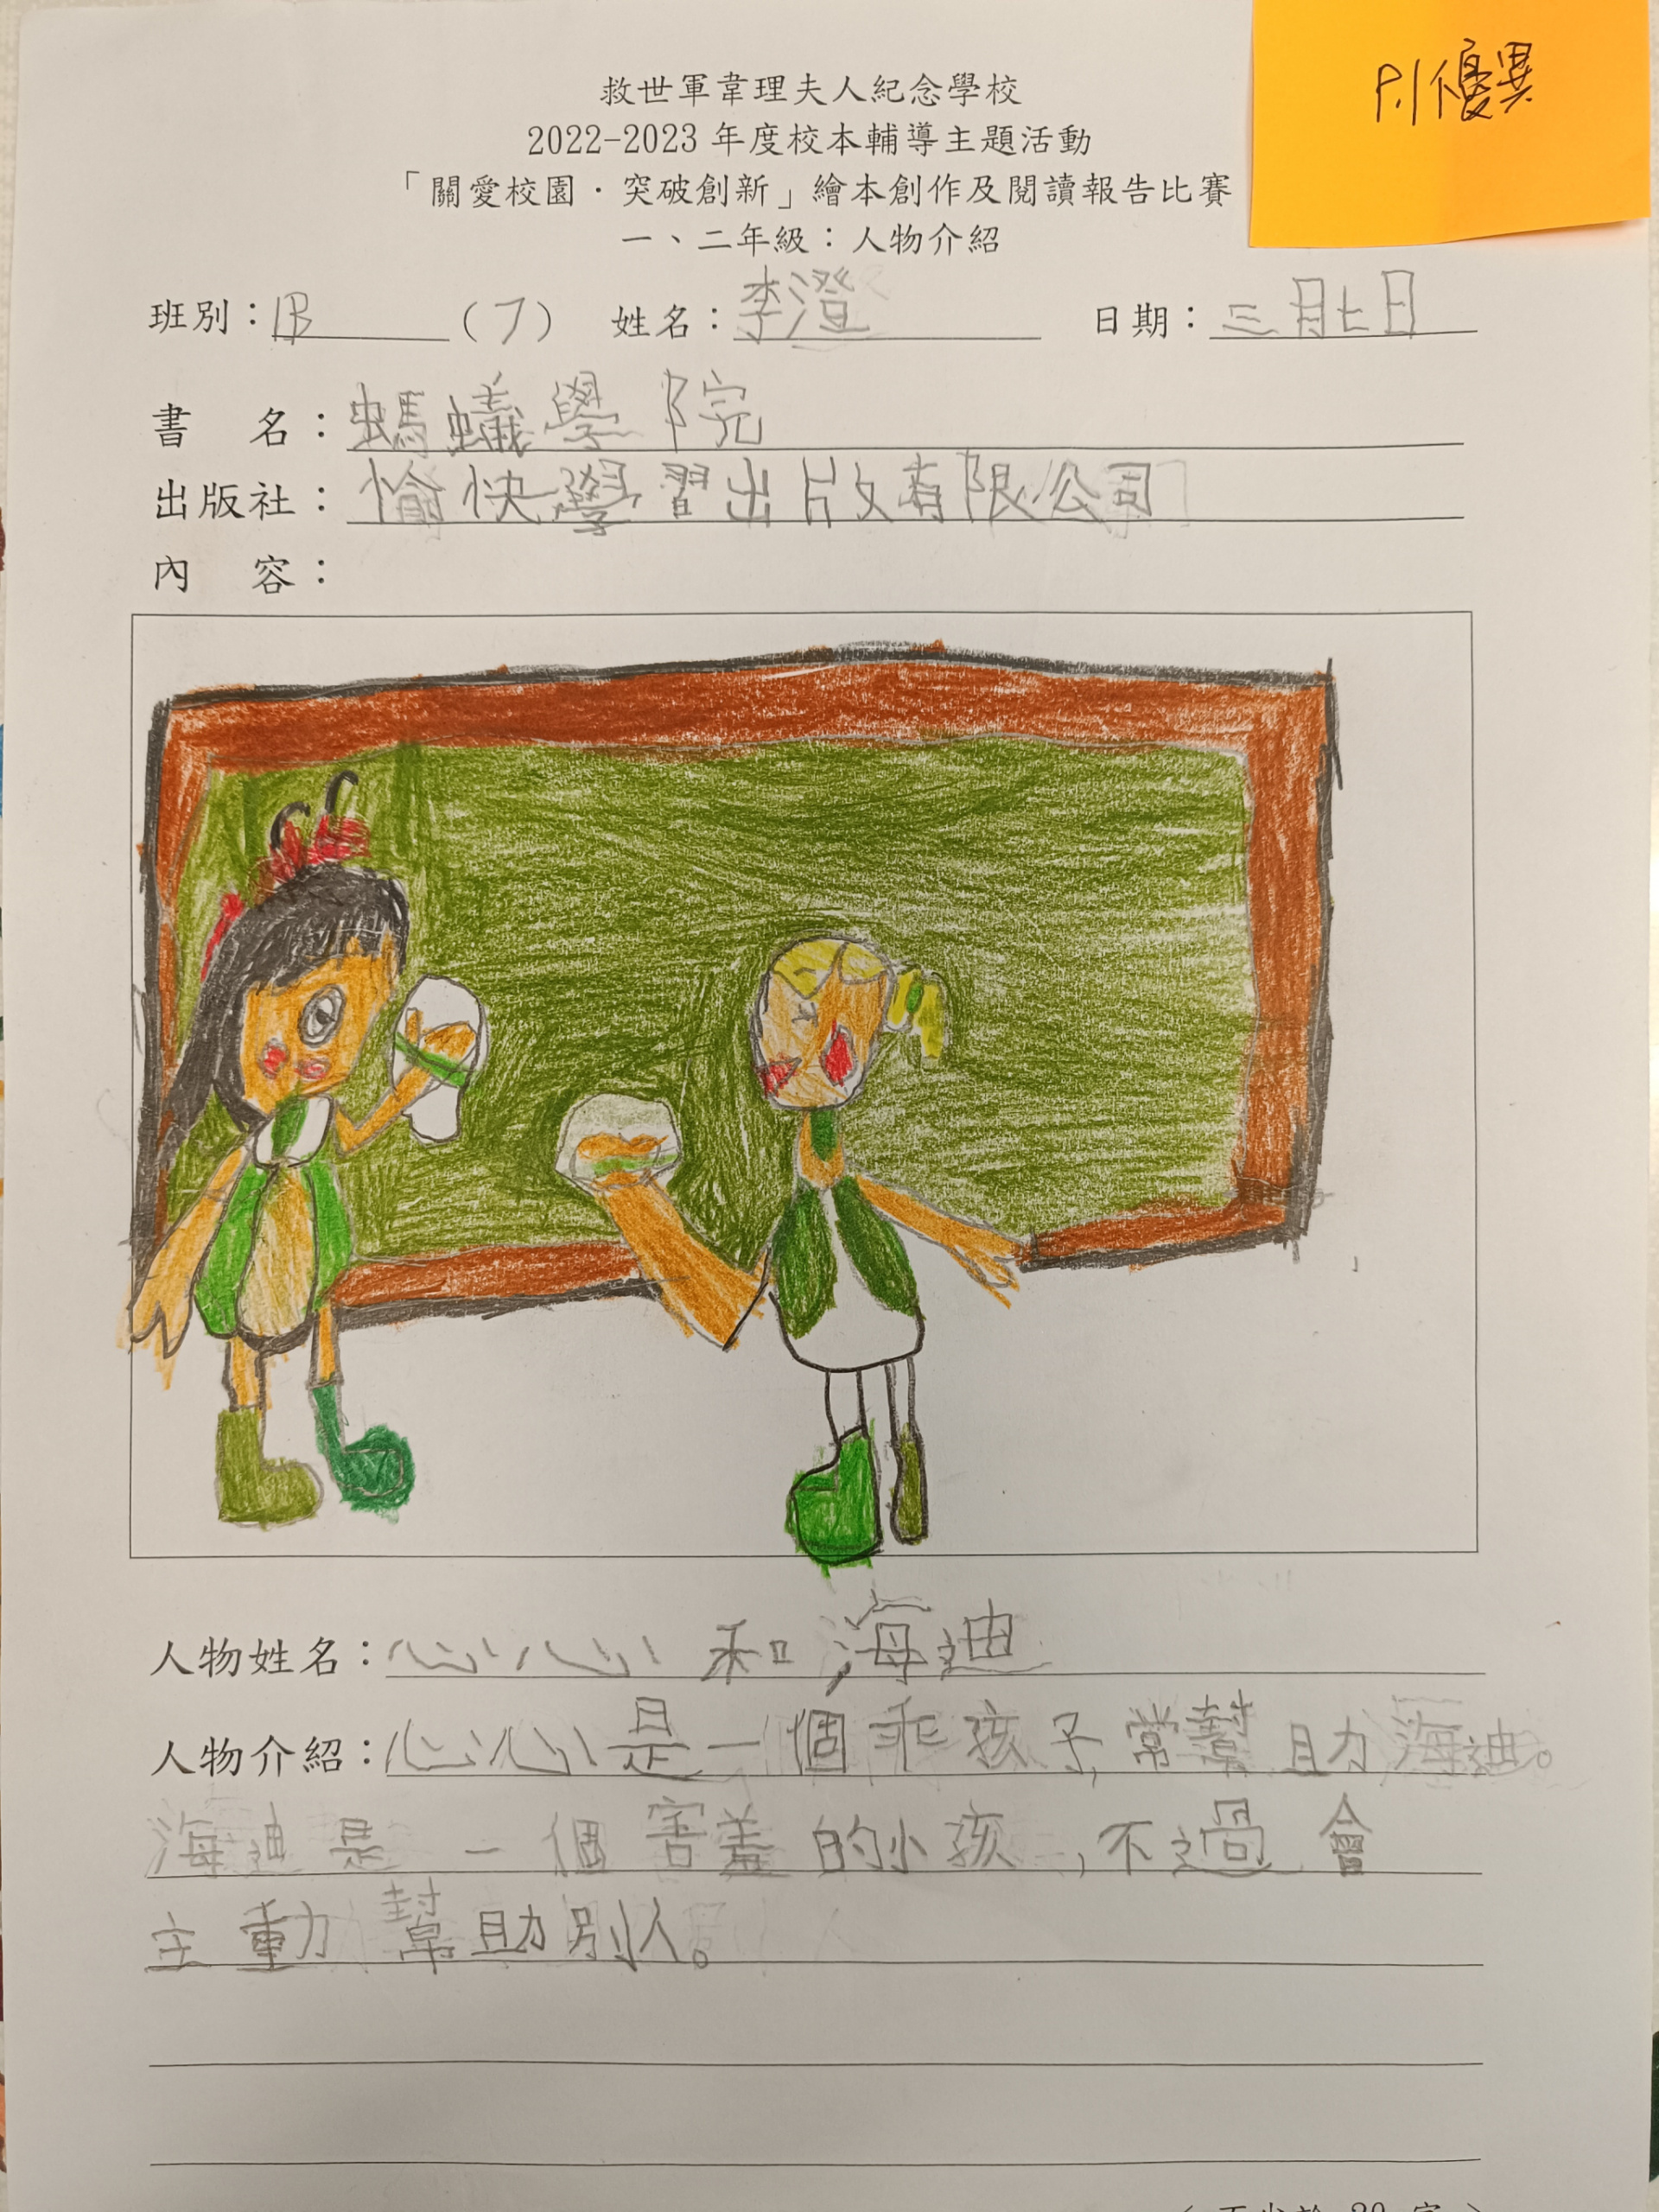 P.1優異
救世軍韋理夫人紀念學校
2022-2023 年度校本輔導主題活動
「關愛校園．突破創新」繪本創作及閱讀報告比賽
一、二年級：人物介紹
班別：1B (7) 姓名：李澄 日期：三月七日
書 名：螞蟻學院
出版社：愉快學習出版有限公司
內 容：
人物姓名：心心和海迪
人物介紹：心心是一個乖孩子,常幫助海迪。
海迪是一個害羞的小孩,不過會
主動幫助別人。